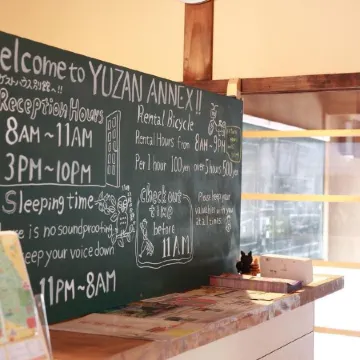 Welcome to YUZAN ANNEX!!
ゲストハウス別館へ!!
Reception Hours
8AM~11AM
3PM~10PM
Sleeping time
is no soundproofing
keep your voice down
11PM~8AM
Rental Bicycle
Rental Hours from 8AM~9PM
Per 1 hour 100yen over 5 hours 500yen
check out
time
before
11AM
Please keep your
valuables with you
at all times.